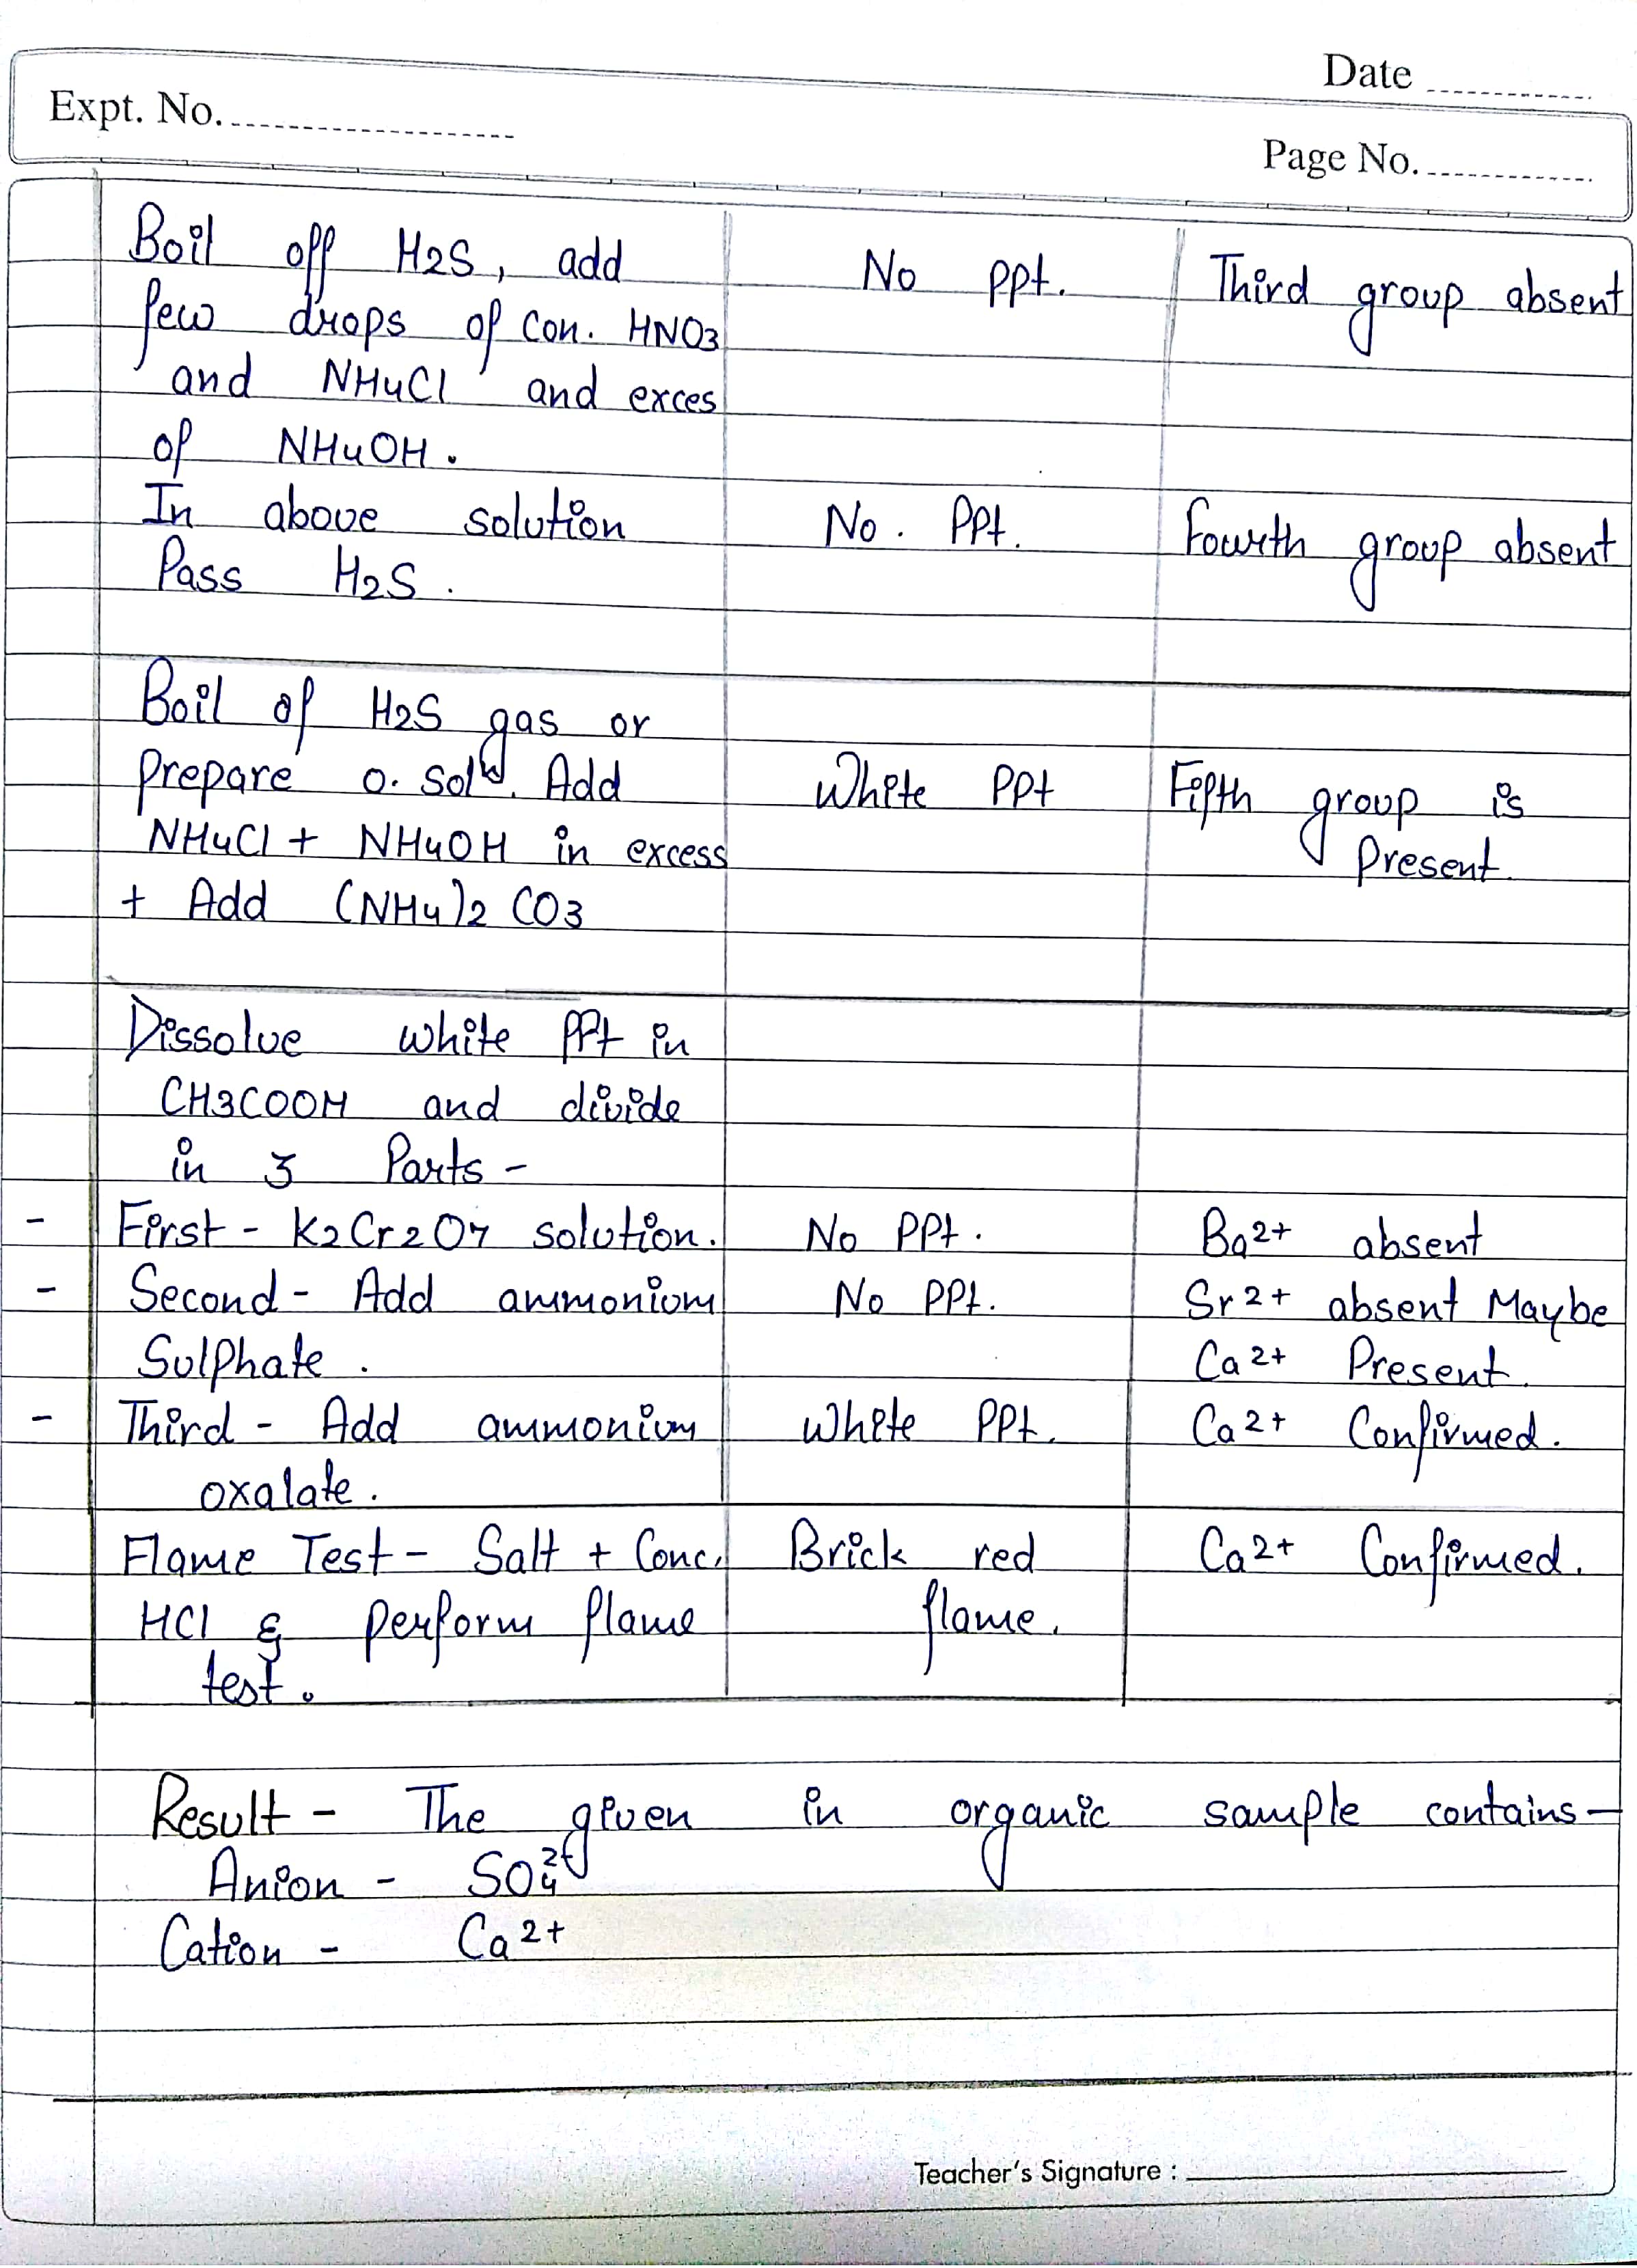 Date
Expt. No.
Page No.
Boil off H2S, add No ppt. Third group absent
few drops of con. HNO3
and NH4Cl and exces
of NH4OH.
In above solution No. PPt. Fourth group absent
Pass H2S.
Boil of H2S gas or
Prepare o. Sol Add White PPt Fifth group is
NH4Cl + NH4OH in excess Present.
+ Add (NH4)2 CO3
Dissolve white PPt in
CH3COOH and divide
in 3 Parts -
- First - K2Cr2O7 solution. No PPt. Ba2+ absent
- Second - Add ammonium No PPt. Sr2+ absent Maybe
Sulphate. Ca2+ Present.
- Third - Add ammonium White PPt. Ca2+ Confirmed.
oxalate.
Flame Test - Salt + Conc. Brick red Ca2+ Confirmed.
HCl & perform flame flame.
test.
Result - The given in organic sample contains -
Anion - SO4 2-
Cation - Ca2+
Teacher's Signature :